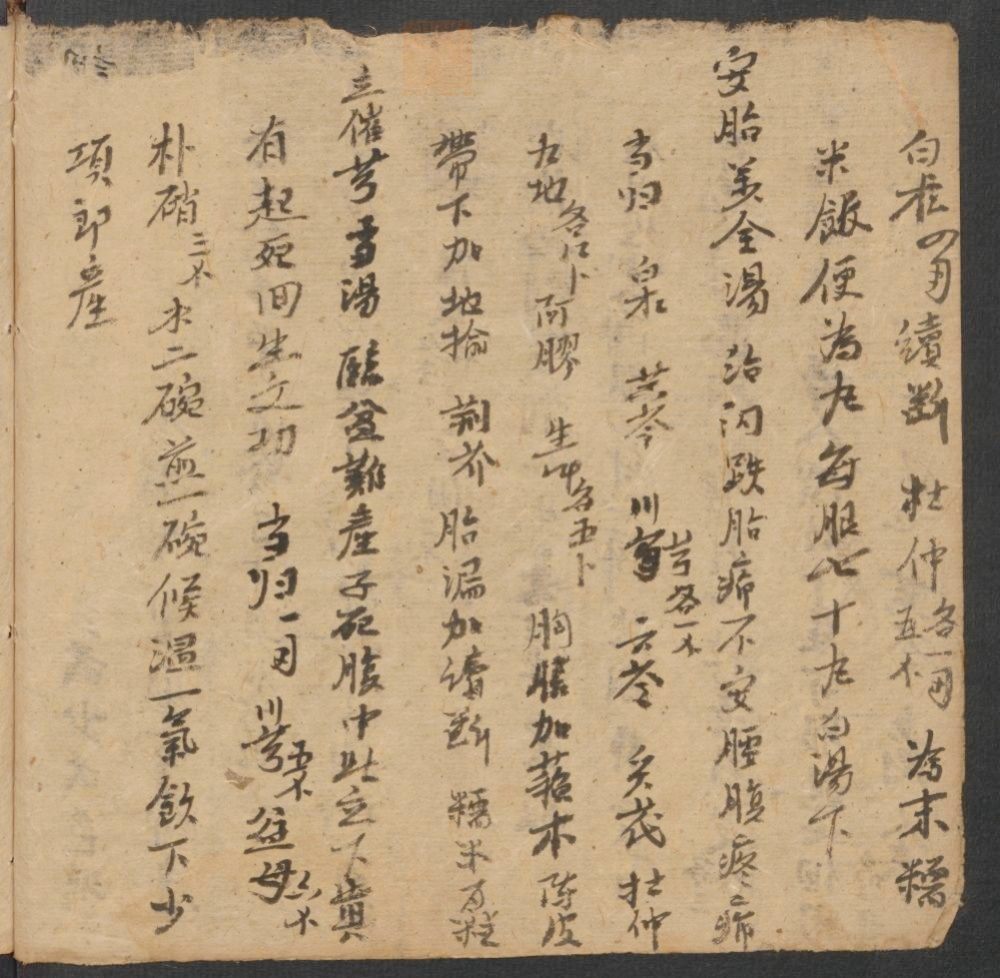 白朮四刄續斷 杜仲各一刄五不 為末糯
米飯便為丸每服七十丸白湯下
安胎美全湯 治闪跌胎痛不安腰腹疼痛
当归 白朮 芩 川芎各一不 云苓 炙芪 杜仲
九地各八卜 阿膠 生各五卜 胸膈加 木 陈皮
帶下加地揄 荊芥 胎漏加續斷 糯米百粒
立催芎 湯 臨盆難產子死腹中此立下真
有起死回生之功 当归一刄 川芎五不 益母 不
朴硝三不 水二碗煎一碗候溫一氣飲下少
項即產